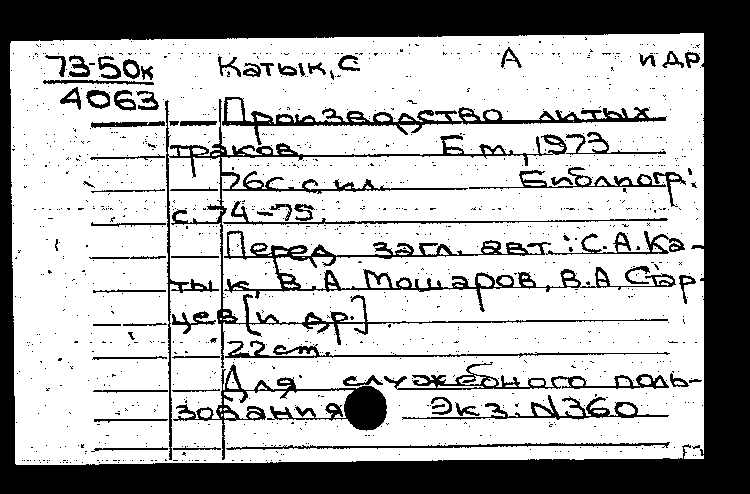 73-50к Катык, С А и др.
4063
Производство литых
траков. Б.м., 1973
76с. с ил. Библиогр:
с. 74-75.
Перед загл. авт.: С.А.Ка-
тык, В.А. Мошаров, В.А. Стар-
цев [и др.]
22 cm.
Для служебного поль-
зования Экз: N360